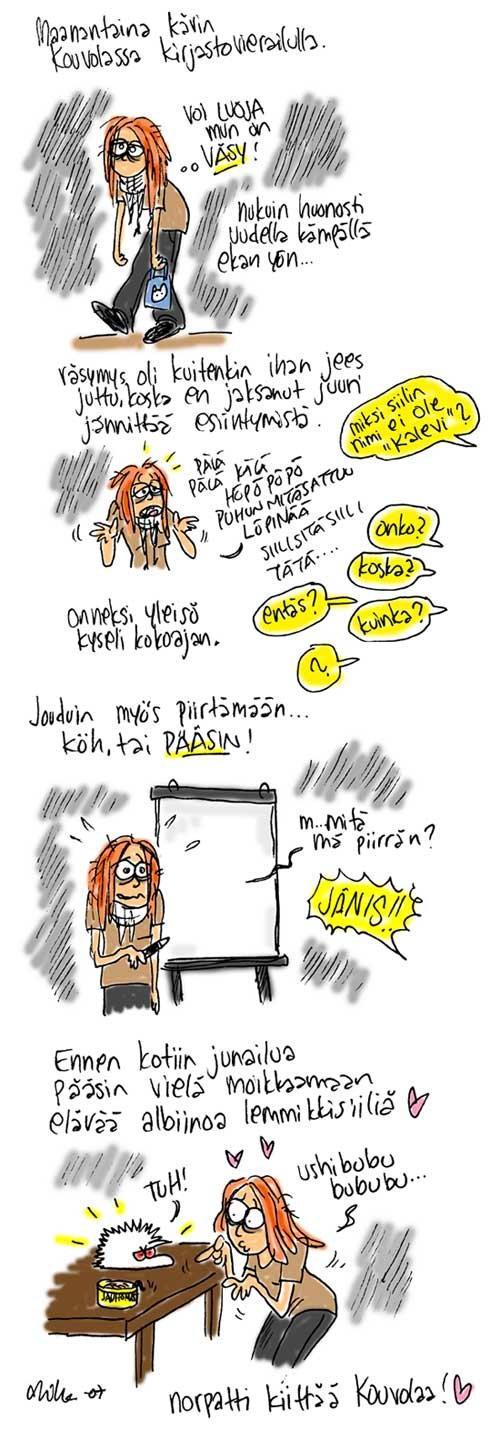 Maanantaina kävin
Kouvolassa kirjastovierailulla.
Voi LUOJA
mun on
VÄSY!
nukuin huonosti
uudella kämpällä
ekan yön...
väsymys oli kuitenkin ihan jees
juttu, koska en jaksanut juuri
jännittää esiintymistä.
miksi siilin
nimi ei ole
"Kalevi"?
PÄLÄ
PÄLÄ
KÄLÄ
HÖPÖ PÖPÖ
PUHUN MITÄSATTUU
LÖPINÄÄ
SIILISITÄ SIILI
TÄTÄ....
onko?
koska?
entäs?
kuinka?
?
onneksi yleisö
kyseli kokoajan.
Jouduin myös piirtämään...
köh, tai PÄÄSIN!
m...mitä
mä piirrän?
JÄNIS!!
Ennen kotiin junailua
pääsin vielä moikkaamaan
elävää albiinoa lemmikkisiiliä
TUH!
ushibubu
bububu...
JAUHOMAD
norpatti kiittää Kouvolaa!